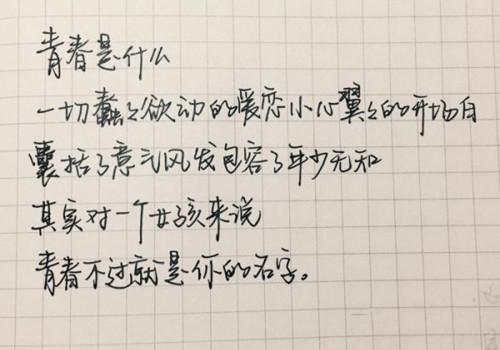 青春是什么
一切蠢々欲动的爱恋小心翼々的开场白
囊括了意气风发包容了年少无知
其实对一个女孩来说
青春不过就是你的名字。